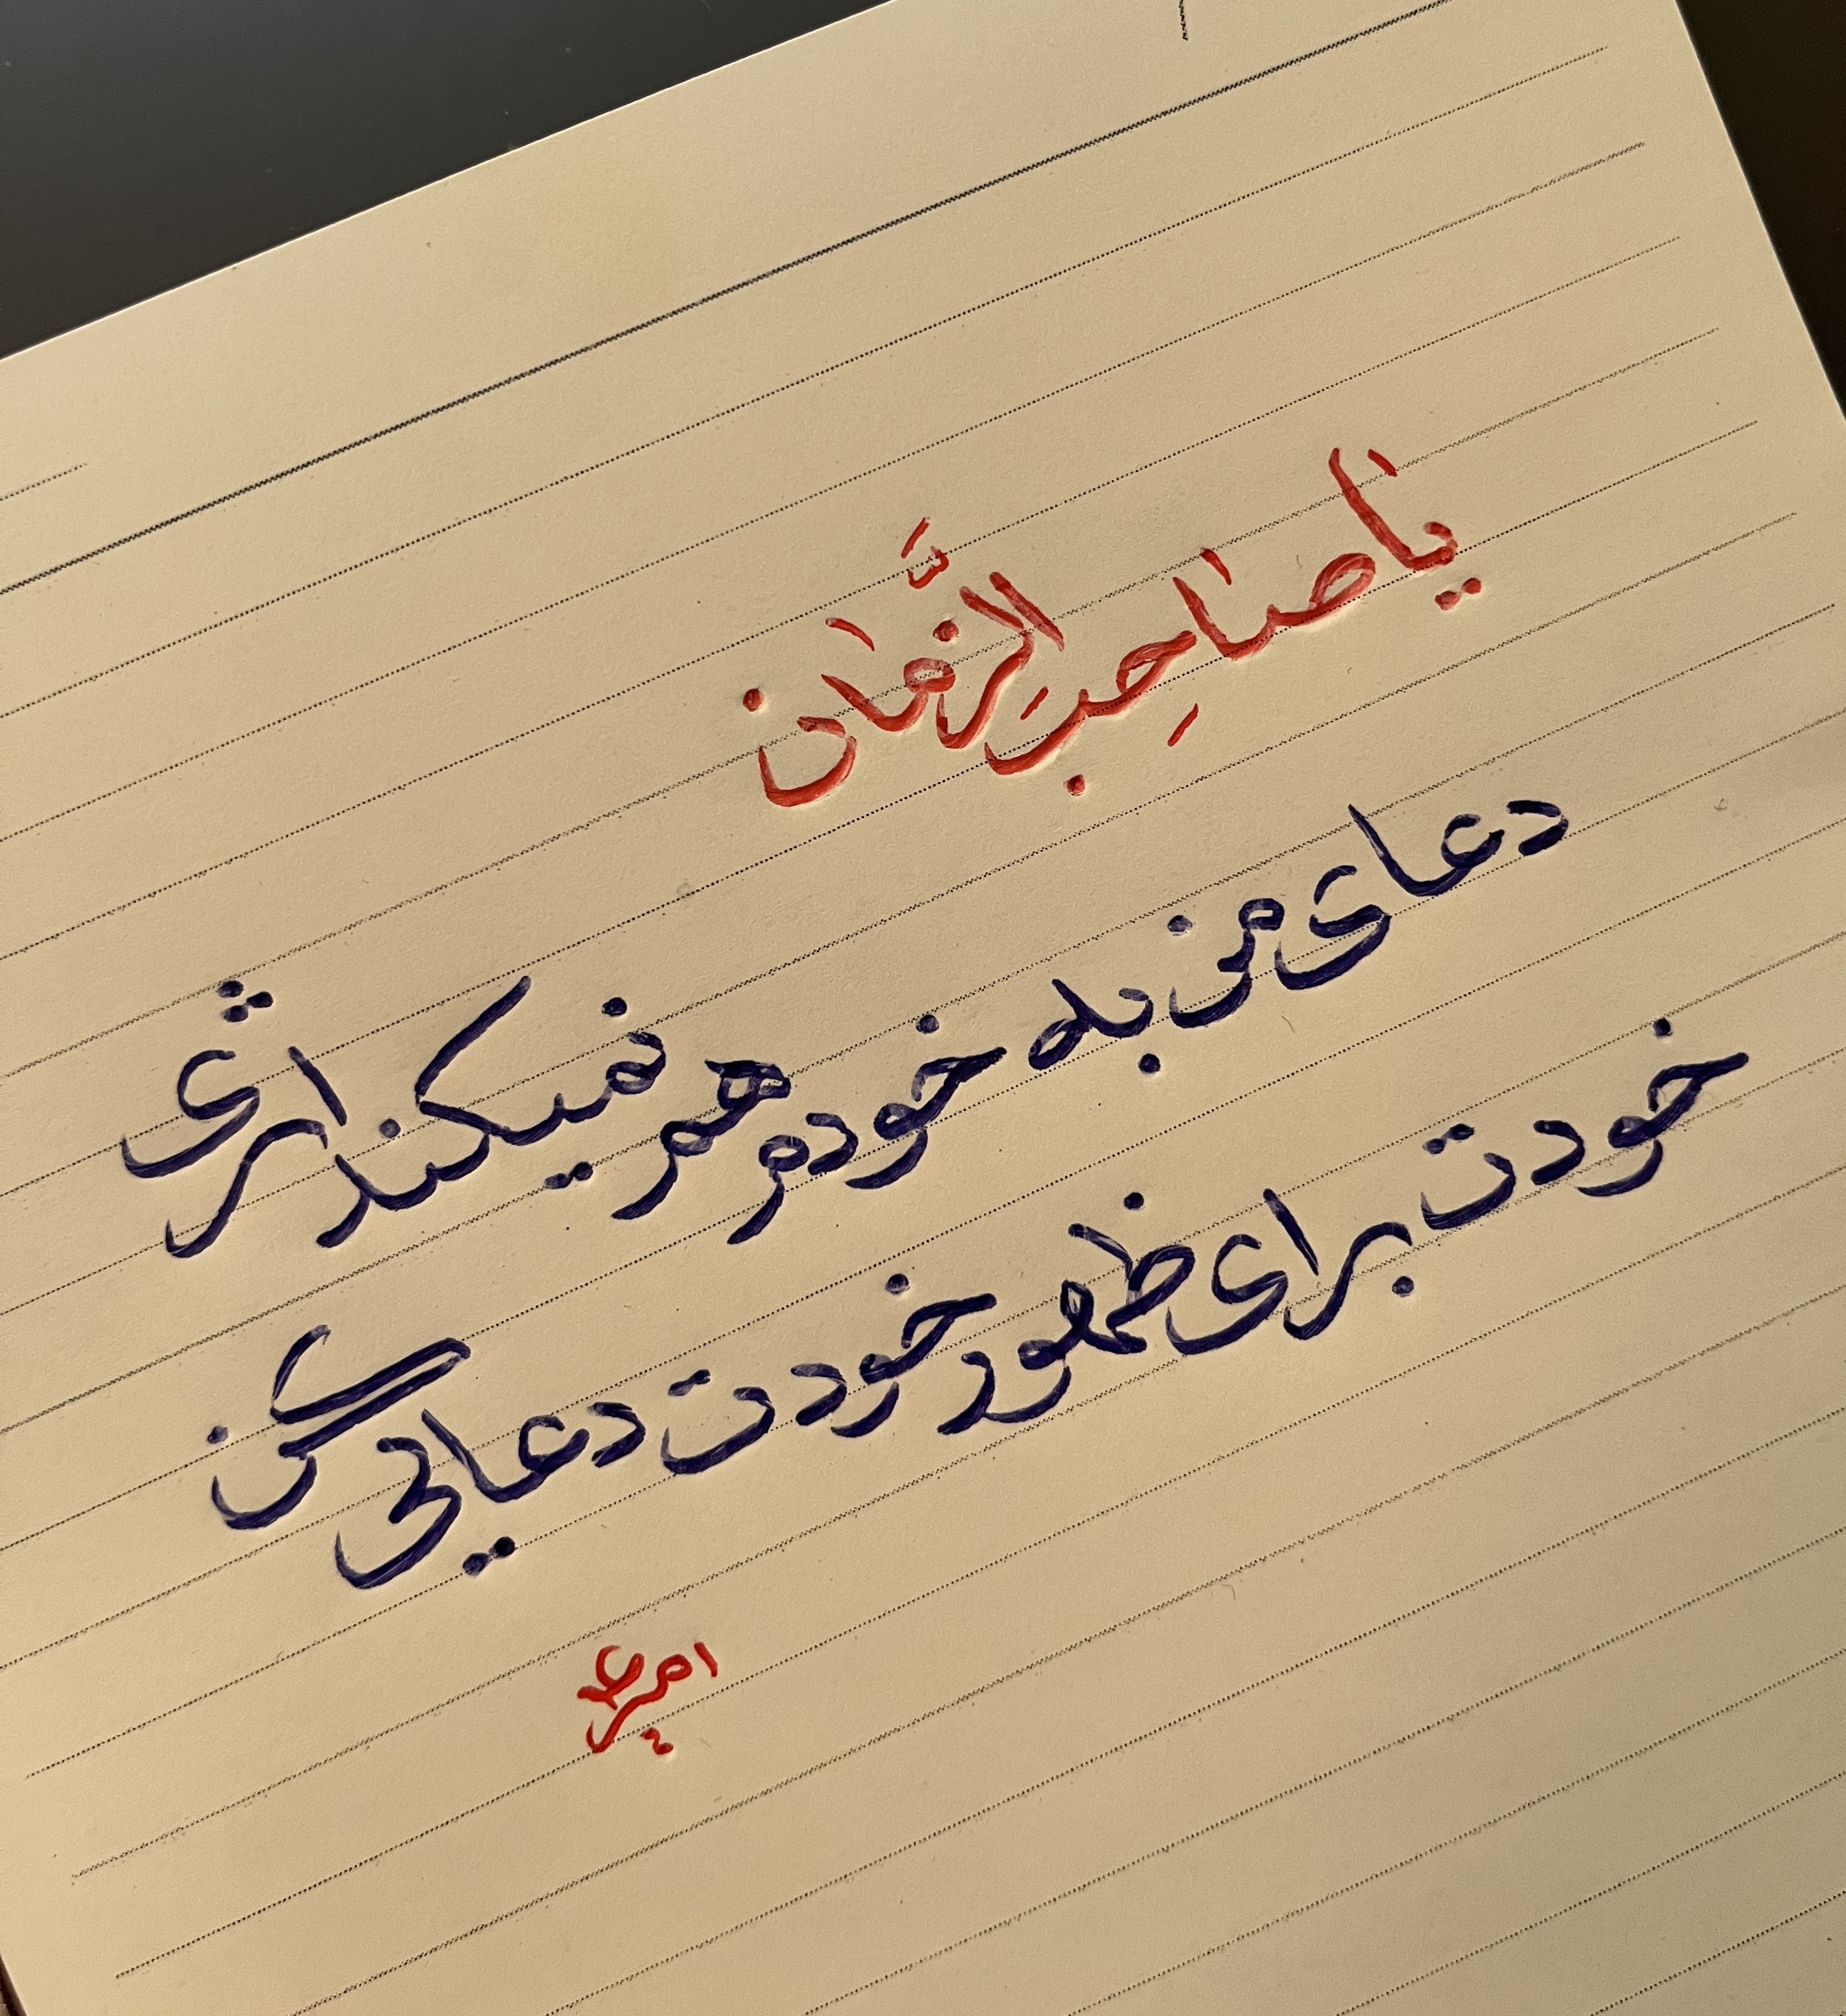 یا صاحِبَ الزَّمان
دعای من به خودم هم نمیکند اثری
خودت برای ظهور خودت دعایی کن